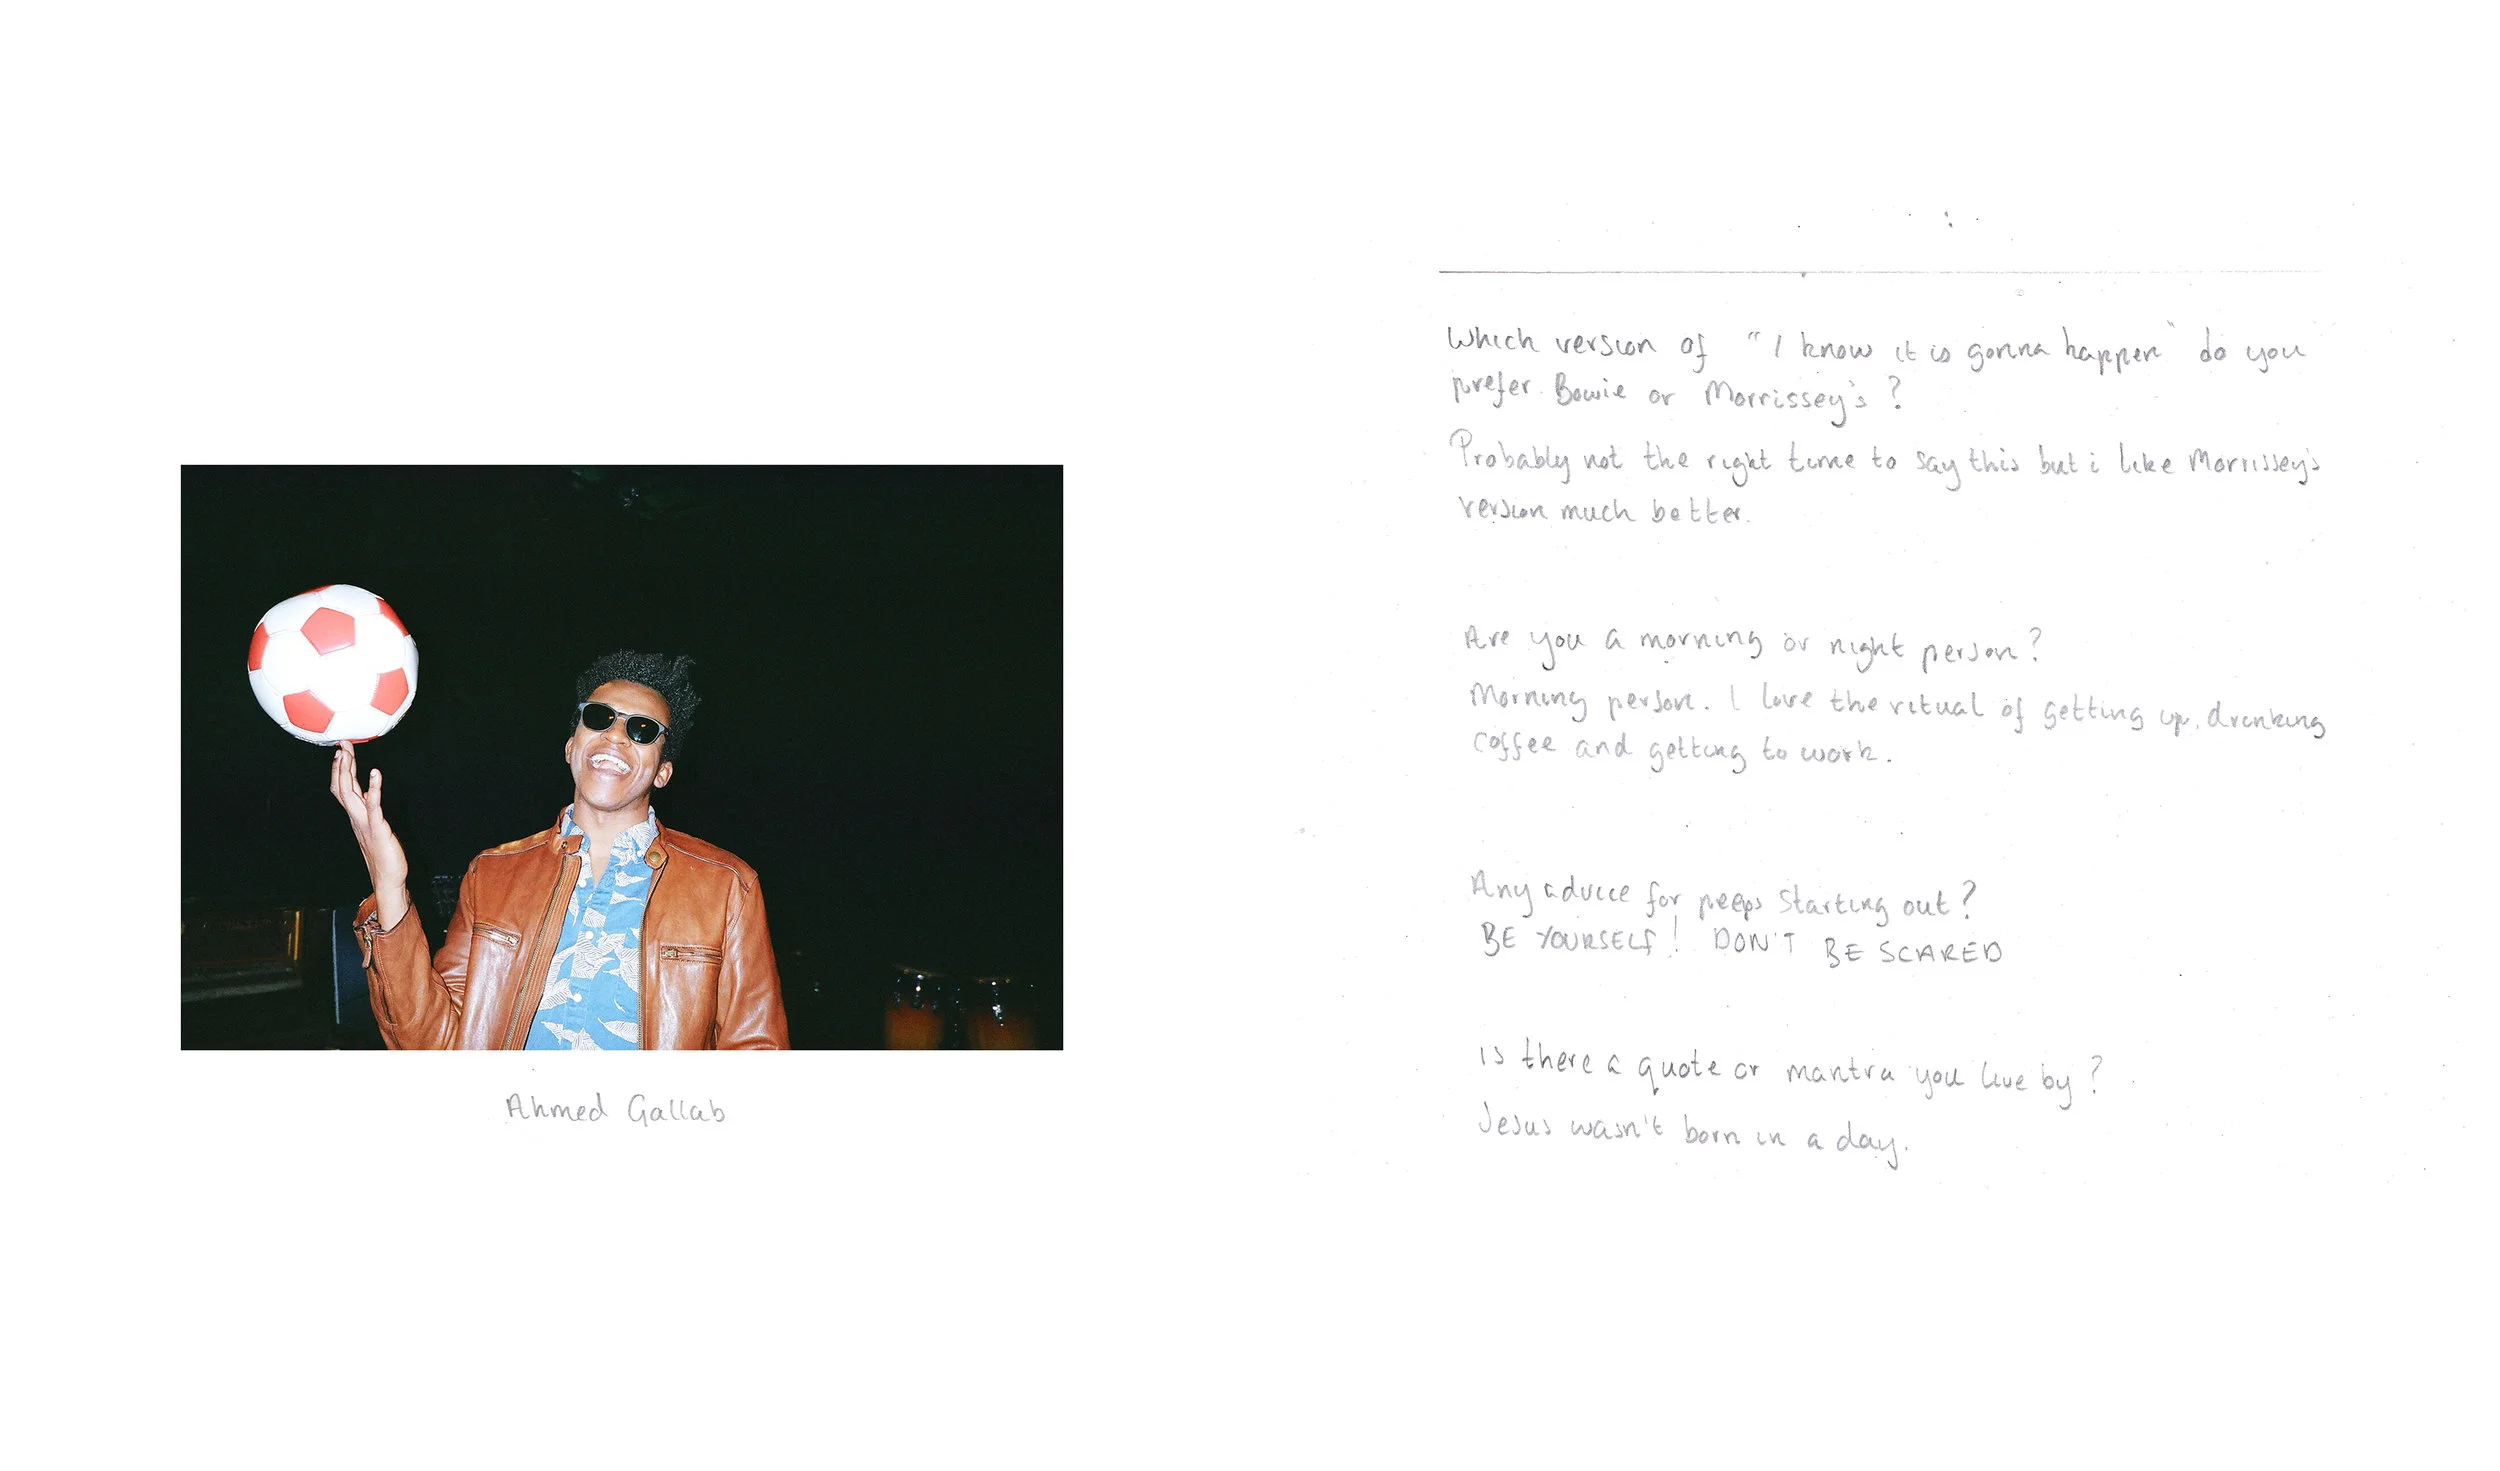 Ahmed Gallab
Which version of "I know it is gonna happen" do you
prefer. Bowie or Morrissey's?
Probably not the right time to say this but i like Morrissey's
version much better.
Are you a morning or night person?
Morning person. I love the ritual of getting up, drinking
coffee and getting to work.
Any advice for peeps starting out?
BE YOURSELF! DON'T BE SCARED
is there a quote or mantra you live by?
Jesus wasn't born in a day.